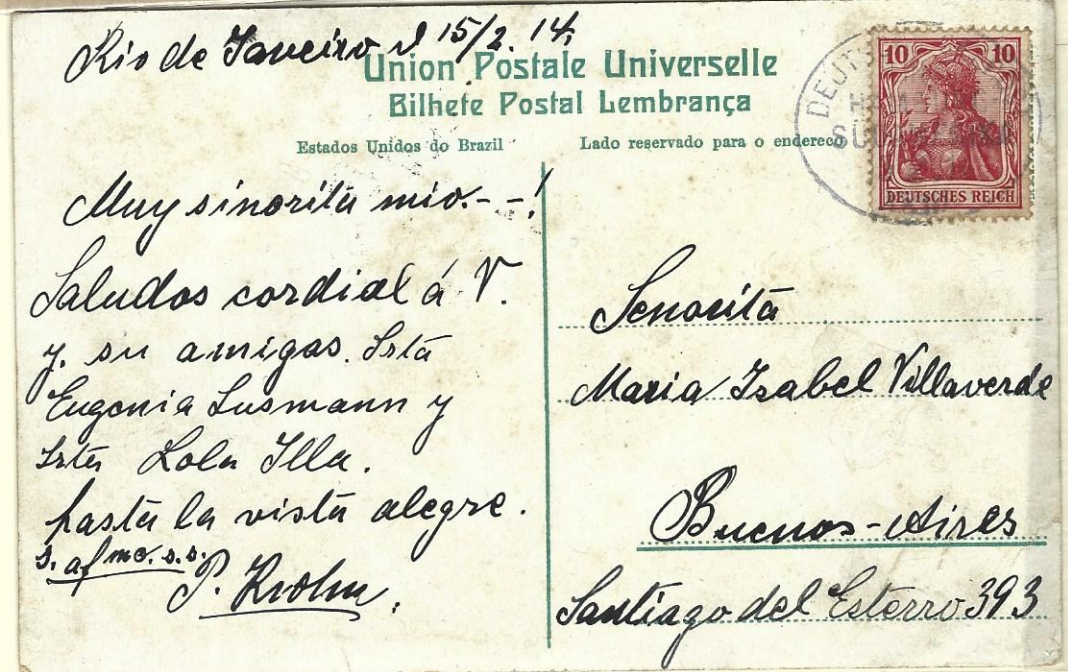 Rio de Janeiro d 15/2. 14.
Union Postale Universelle
Bilhete Postal Lembrança
Estados Unidos do Brazil
Lado reservado para o endereço
Muy sinorita mio.--!
Saludos cordial á V.
y. su amigas. Srta
Eugenia Susmann y
Srta Lola Illa.
hasta la vista alegre.
s. afmo. s. s.
P. Krohn.
10 10
DEUTSCHES REICH
DEUT
SÜ
Senorita
Maria Isabel Villaverde
Buenos-Aires
Santiago del Esterro 393